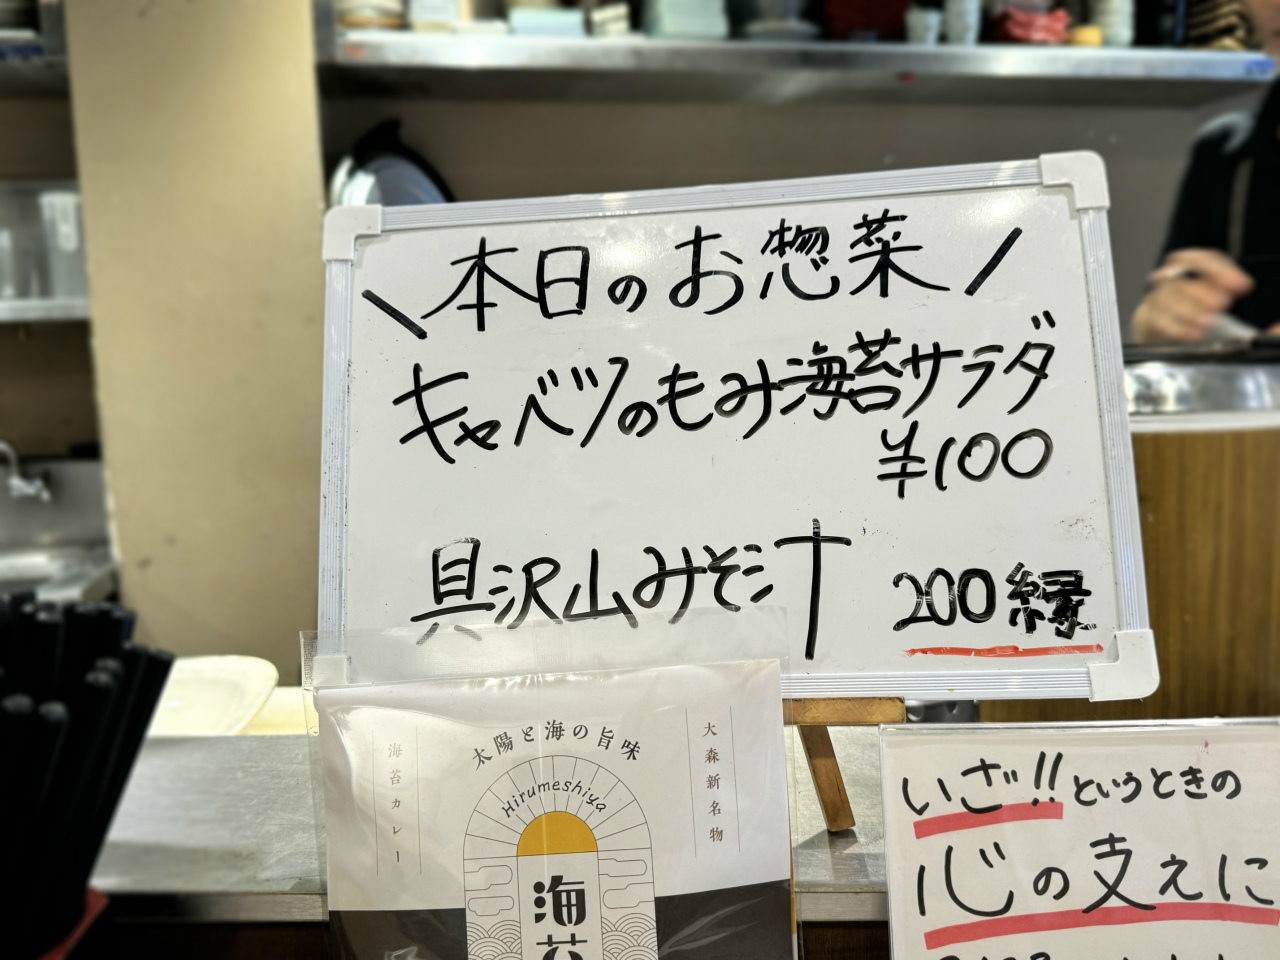 \本日のお惣菜/
キャベツのもみ海苔サラダ
¥100
具沢山みそ汁 200縁
太陽と海の旨味
海苔カレー
大森新名物
Hirumeshiya
海苔
いざ!!というときの
心の支えに